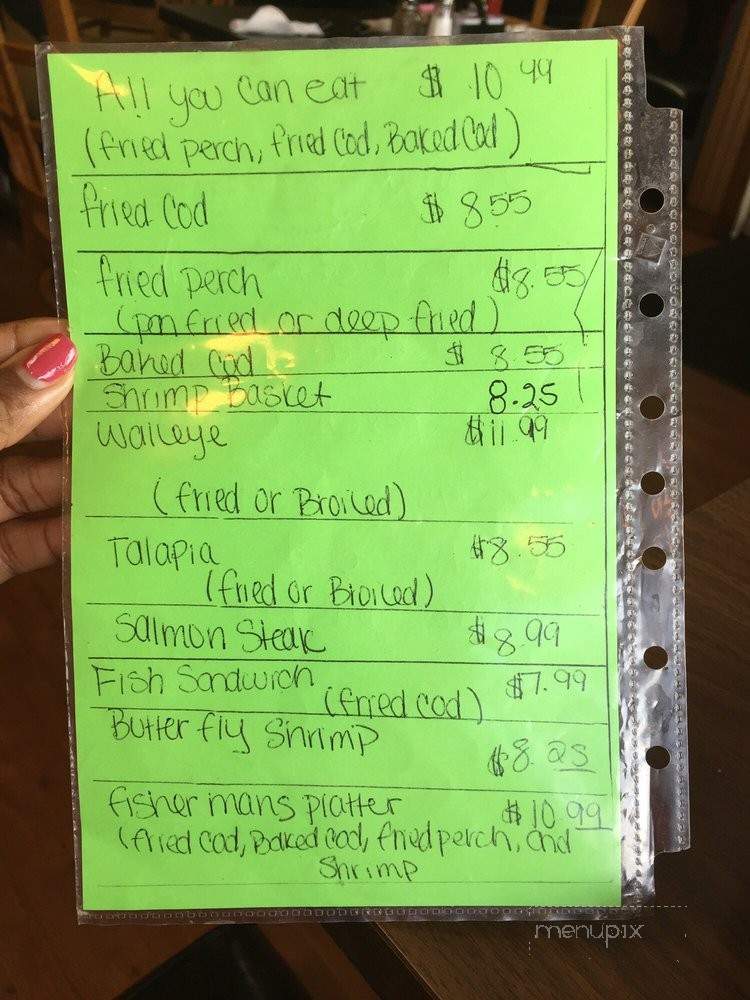 All you can eat $ 10 99
(fried perch, fried Cod, Baked Cod)
fried Cod $ 8.55
fried perch $8.55
(pan fried or deep fried)
Baked Cod $ 8.55
Shrimp Basket 8.25
Walleye $11.99
(fried or Broiled)
Talapia $8.55
(fried or Broiled)
Salmon Steak $8.99
Fish Sandwich (fried cod) $7.99
Butter fly Shrimp $8.25
fisher mans platter $10.99
(fried Cod, Baked Cod, fried perch, and
Shrimp
menupix